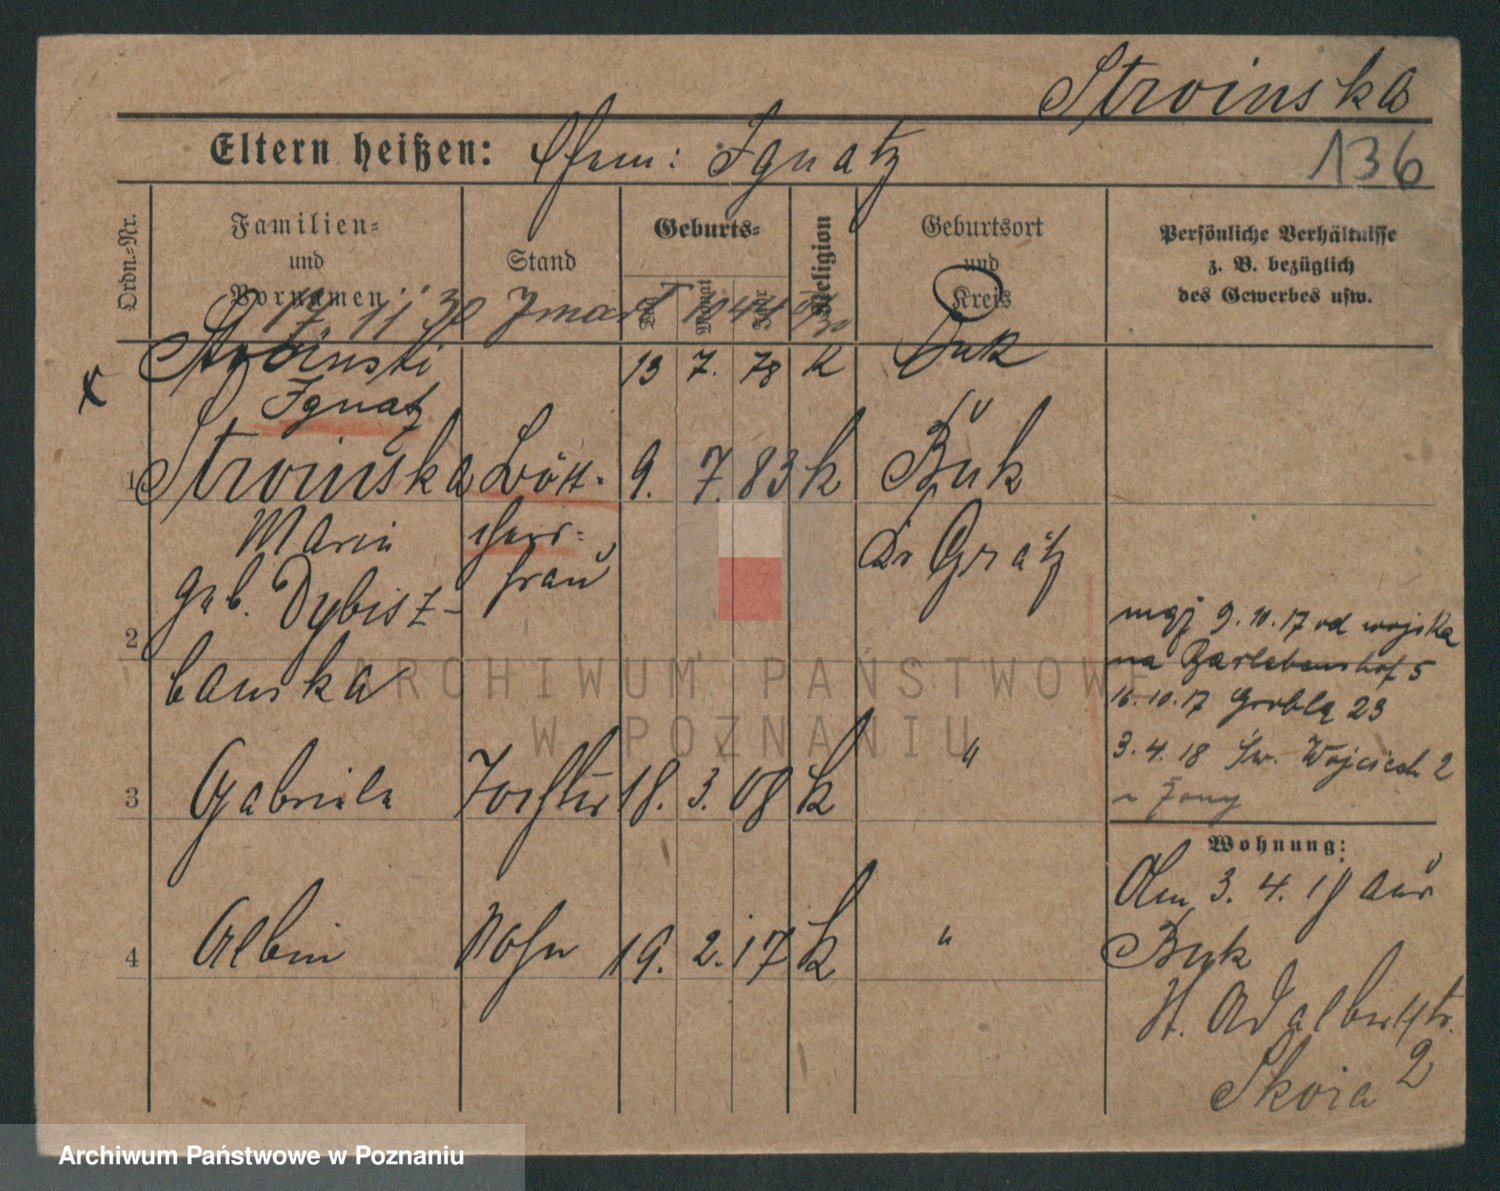 Stroinska
136
Eltern heißen: Ehem: Ignatz
Ordn.-Nr.
Familien-
und
Vornamen
Stand
Geburts-
Tag
Monat
Jahr
Religion
Geburtsort
und
Kreis
Persönliche Verhältnisse
z. B. bezüglich
des Gewerbes usw.
17. 11 30
x Stroinski 13 7. 78 k Buk
Ignatz
1 Stroinska Bött- 9. 7. 83 k Buk
Maria cher- Kr Grätz
geb. Dybisz- frau
2
banska
mąż 9.10.17 od wojska
na Bartebenshof 5
16.10.17 Grobla 23
3.4.18 Św. Wojciech 2
3 Gabriela Tochter 18. 3. 08 k "
Wohnung:
4 Albin Sohn 19. 2. 17 k "
3. 4. 18 aus
Buk
St. Adalbertstr.
2
ARCHIWUM PAŃSTWOWE
W POZNANIU
Archiwum Państwowe w Poznaniu